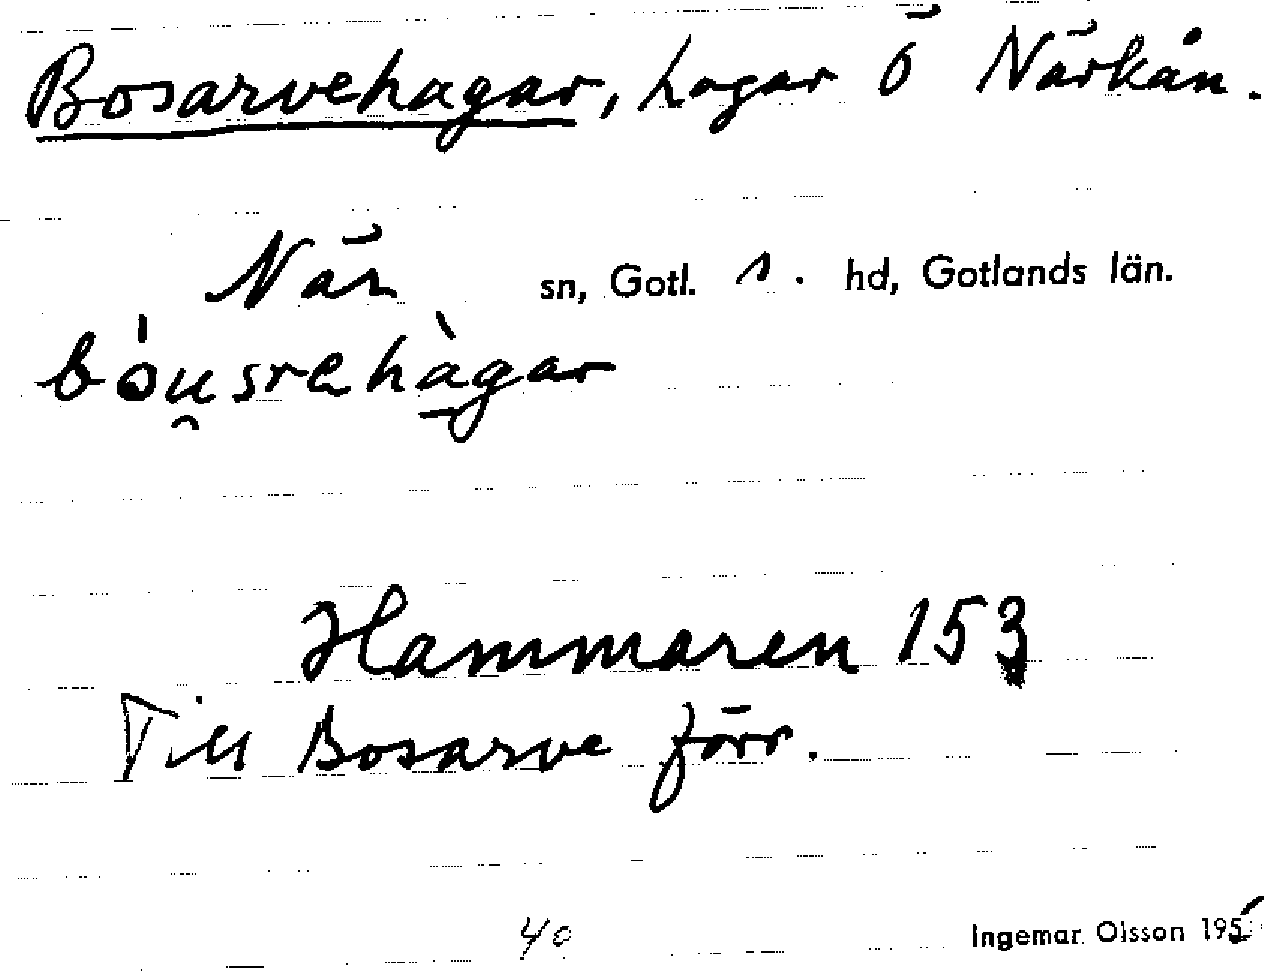 Bosarvehagar, hagar Ö Närkån.
När sn, Gotl. s. hd, Gotlands län.
bóu̯srehàgar
Hammaren 153
Till Bosarve förr.
40 Ingemar Olsson 195